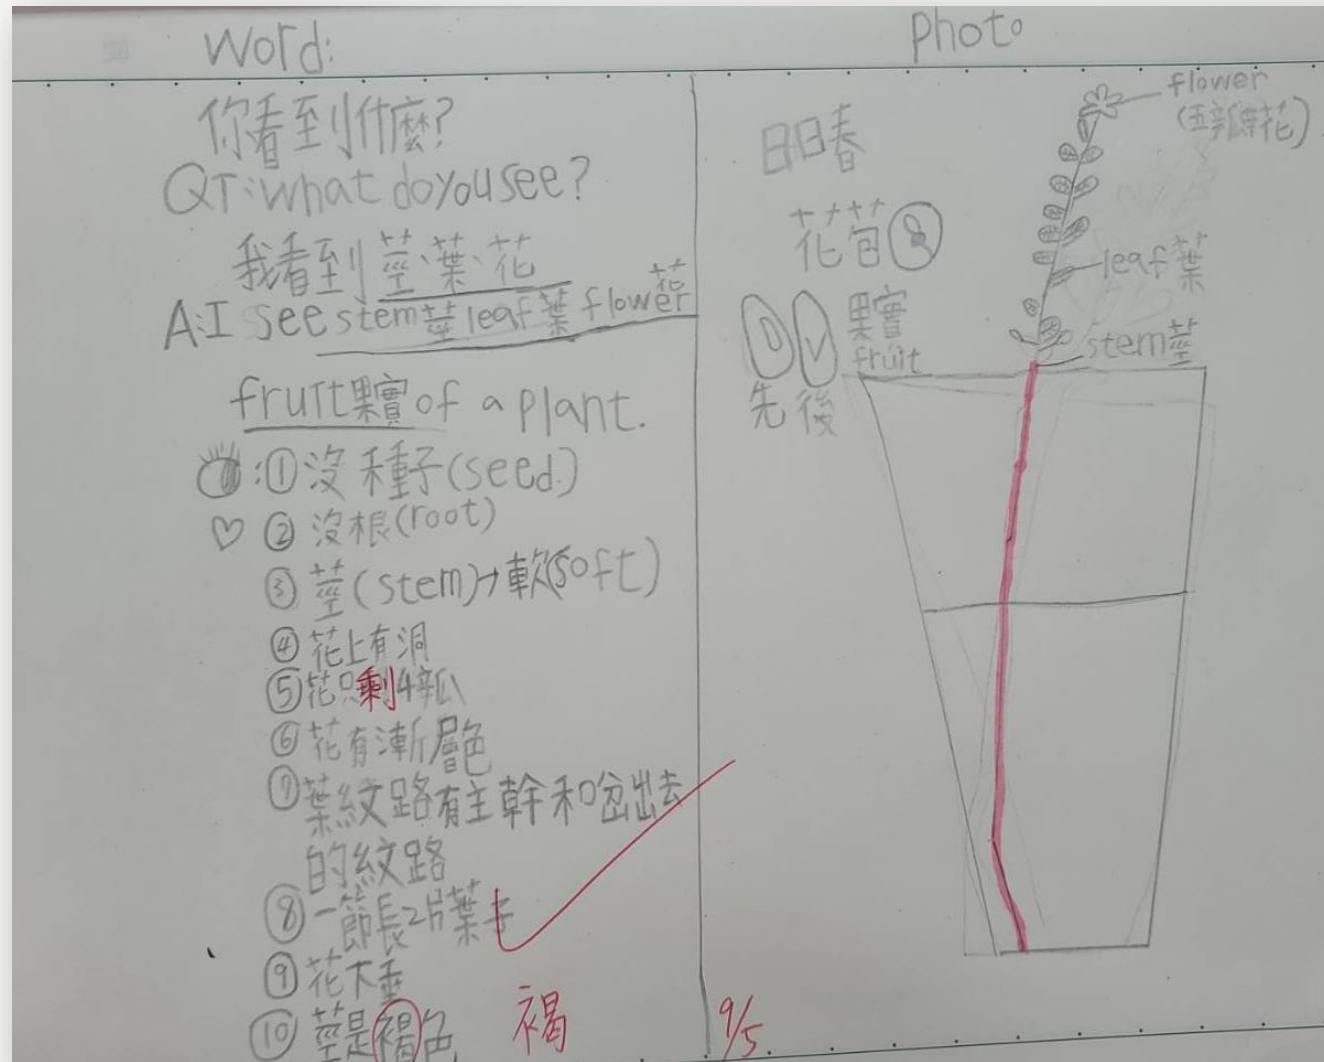 Word:
你看到什麼?
QT:what do you see?
我看到莖、葉、花
花
A:I see stem莖 leaf葉 flower
fruit果實 of a plant.
:①沒種子(seed.)
♡ ②沒根(root)
③莖(stem)→軟(soft)
④花上有洞
⑤花只剩4瓣
⑥花有漸層色
⑦葉紋路有主幹和岔出去
的紋路
⑧一節長2片葉子
⑨花下垂
⑩莖是褐色
褐
9/5
photo
flower
(五瓣花)
日日春
花苞
leaf葉
果實
fruit
stem莖
先 後